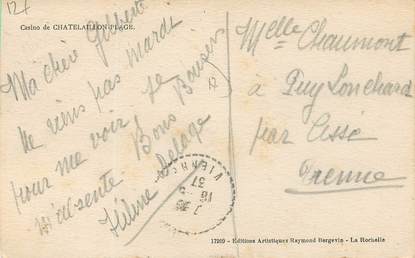 12f
Casino de CHATELAILLON-PLAGE.
Ma chère Gilberte
Ne viens pas mardi
pour me voir je
m'absente. Bons Baisers
Hélène Delage
VIENNE
16
37
Melle Chaumont
à Puy Lonchard
par Cissé
Vienne
17209 - Editions Artistiques Raymond Bergevin - La Rochelle